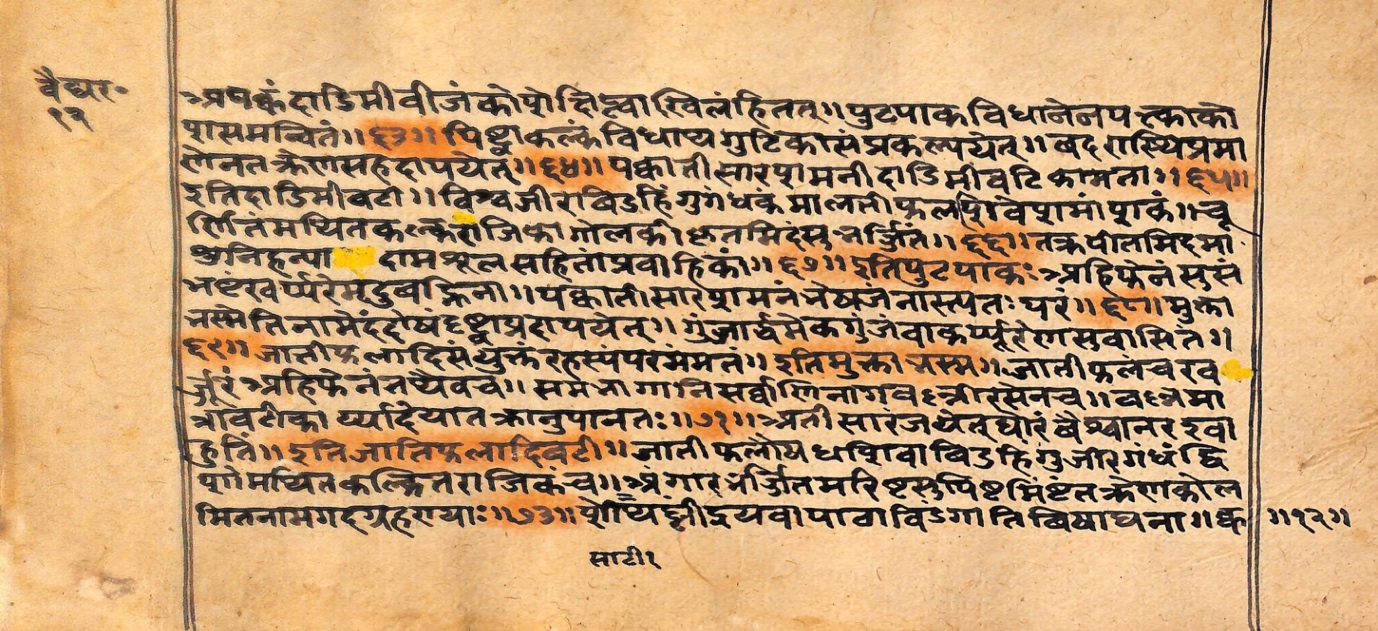 वैद्यर॰
१२
अपक्वं दाडिमीबीजं कोषे क्षिप्त्वाखिलं हि तत्॥ पुटपाकविधानेन पक्त्वा को
शसमन्वितं॥६३॥ पिष्ट्वा कल्कं विधाय गुटिकासं प्रकल्पयेत्॥ बदरास्थिप्रमा
णेन तक्रेण सह दापयेत्॥६४॥ पक्वातीसारशमनी दाडिमीवटिका मता॥६५॥
इति दाडिमीवटी॥ विश्वजीरविडहिंगुगंधकं मालतीफल शमांशकं॥ चू
र्णितं मथित राजिका गोलकीकृतमिदं सुभर्ज्जितं॥६६॥ तक्रपीतमिदमा
शु निहन्या दामशूलसहितां प्रवाहिकां॥६७॥ इति पुटपाकः अहिफेनं सुसं
भृष्टं खर्प्परे मृदुवह्निना॥ पक्वातीसारशमनं भेषजं नास्त्यतः परं॥६८॥ मुक्ता
भस्मेति नामेदं दोषं दृष्ट्वा प्रदापयेत्॥ गुंजार्धमेकगुंजं वा कर्प्पूरेण सुवासितं॥
६९॥ जातीफलादिसंयुक्तं रहस्यं परमं मतं॥ इति मुक्ताभस्म॥ जातीफलं च ख
र्जूरं अहिफेनं तथैव च॥ समभागानि सर्वाणि नागवल्लीरसेन च॥ वल्लमा
त्रा वटी कार्य्या देया तक्रानुपानतः॥७१॥ अतीसारं जयेत् घोरं वैश्वानर इवा
हुतिं॥ इति जातिफलादिवटी॥ जातीफलौषधशिवाविडहिंगुजीरगंधं द्वि
शो मथितकल्कितराजिकं च॥ अंगारभर्ज्जितमरिष्टसुपिष्टमिष्टं तक्रेण कोल
मितनामगदग्रहण्याः॥७३॥ विडंगातिविषाघना॥ क्व ॥१२॥
साटी१